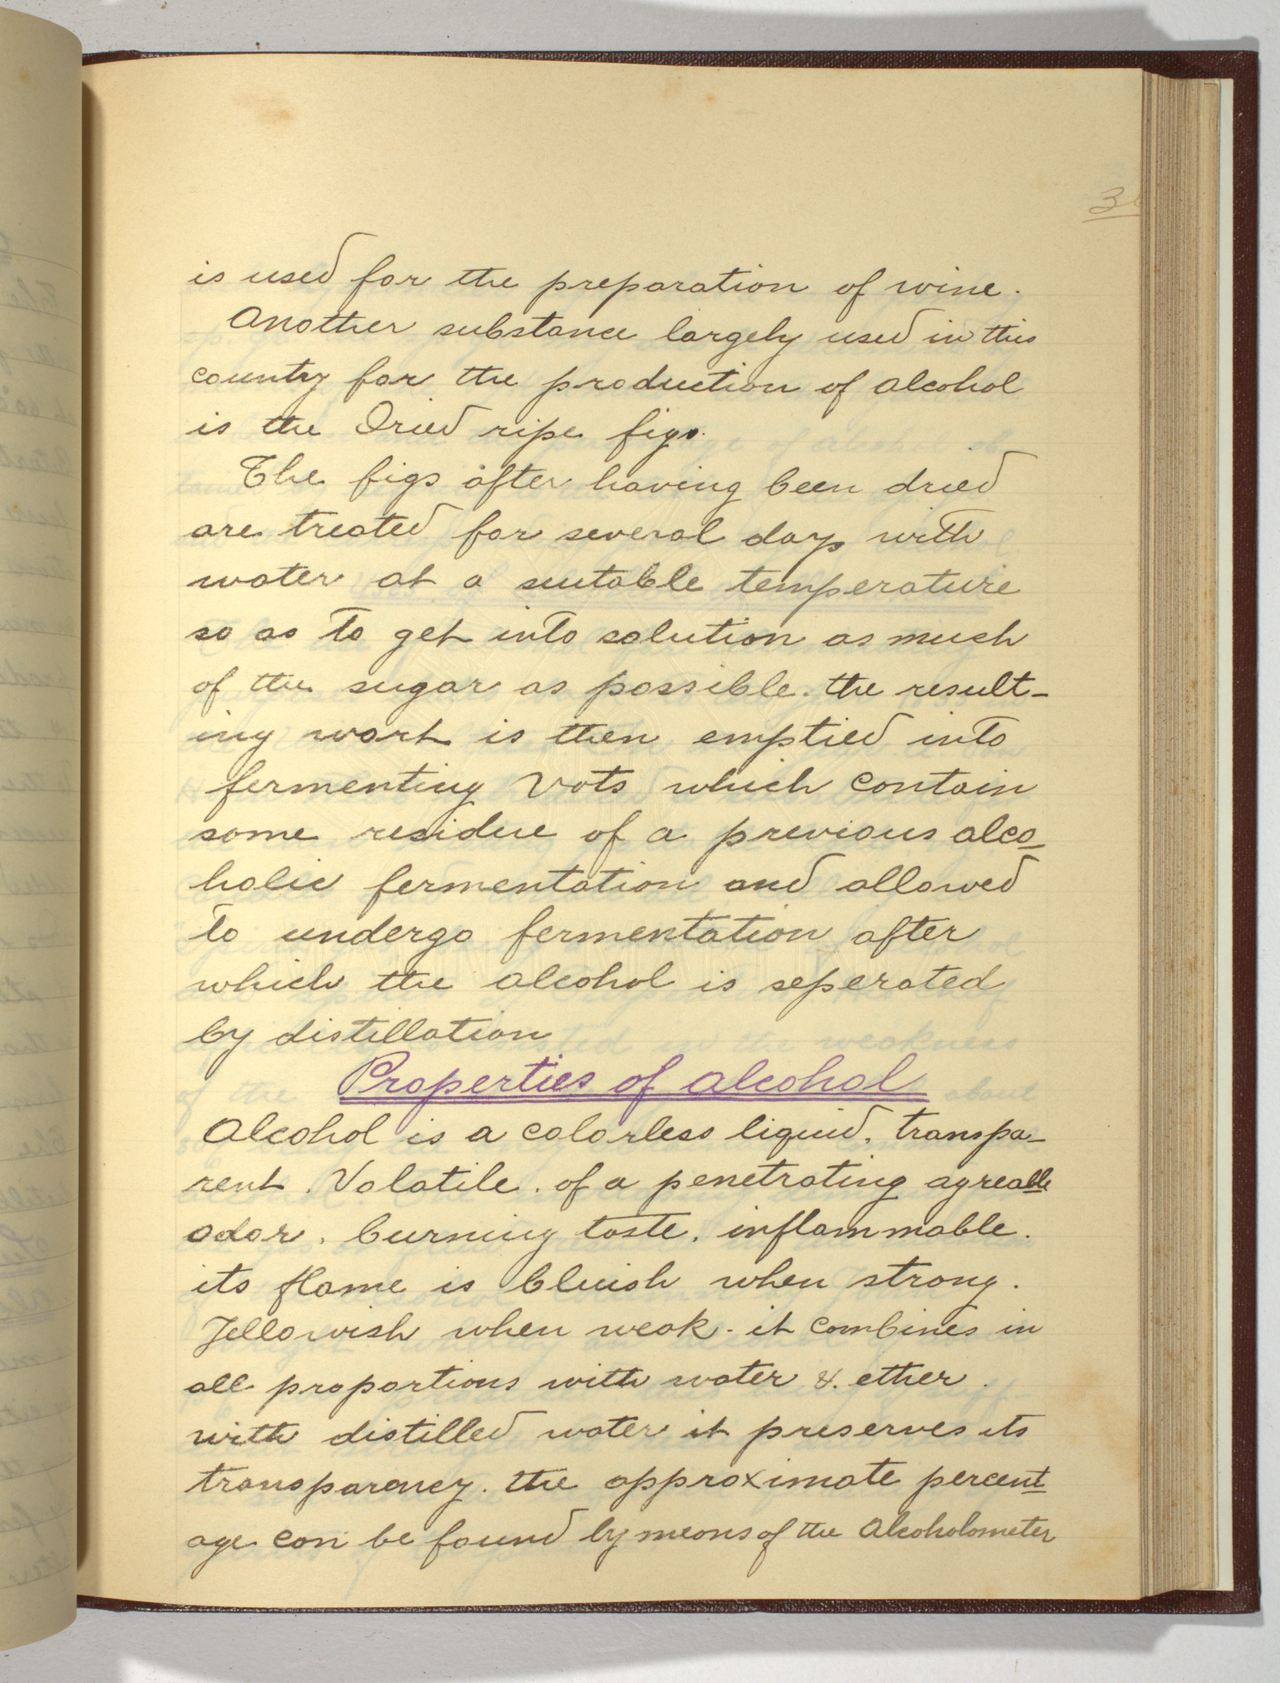 is used for the preparation of wine.
Another substance largely used in this
country for the production of alcohol
is the Dried ripe figs.
The figs after having been dried
are treated for several days with
water at a suitable temperature
so as to get into solution as much
of the sugar as possible. the result-
ing wort is then emptied into
fermenting vats which contain
some residue of a previous alco-
holic fermentation and allowed
to undergo fermentation after
which the alcohol is seperated
by distillation
Properties of alcohol
Alcohol is a colorless liquid, transpa-
rent. Volatile. of a penetrating agreable
odor. burning taste. inflammable.
its flame is bluish when strong.
Yellowish when weak. it combines in
all proportions with water &. ether.
with distilled water it preserves its
transparency. the approximate percent-
age can be found by means of the Alcoholometer